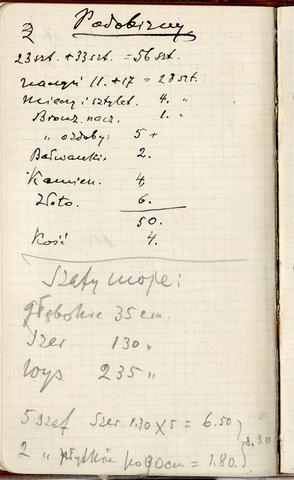 2 Podobizny
23 szt. + 33 szt. = 56 szt.
11. + 17 = 28 szt.
Mieczy i sztylet. 4. "
Bronz. nacz. 1. "
" ozdoby: 5 +
Bałwanki. 2.
Kamien. 4
Złoto. 6.
50.
Kość 4.
Szafy moje:
głębokie 35 cm.
Szer 130 "
wys. 235 "
5 szaf Szer 1.30 x 5 = 6.50
2 " płytkie po 90 cm = 1.80.
8.30